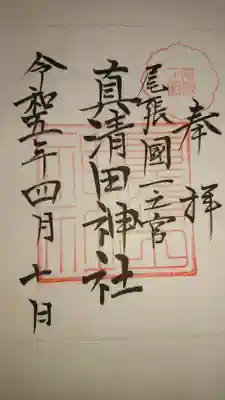 奉拝
尾張國一之宮
真清田神社
令和五年四月七日